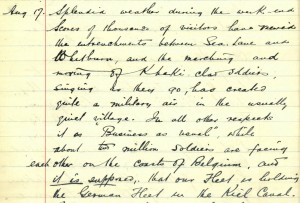 Aug 17. Splendid weather during the week end
Scores of thousands of visitors have
the entrenchments between Sea Lane and
Whitburn, and the marching and
moving of Khaki clad soldiers,
singing as they go, has created
quite a military air in the usually
quiet village. In all other respects
it is "Business as usual", while
about two million soldiers are facing
each other on the coasts of Belgium, and
it is supposed, that our Fleet is holding
the German Fleet in the Kiel Canal.